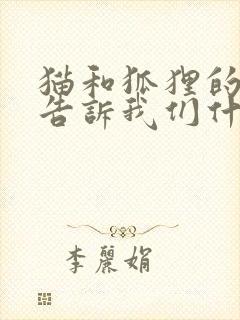 猫和狐狸的
告訴我们什
李麗娟